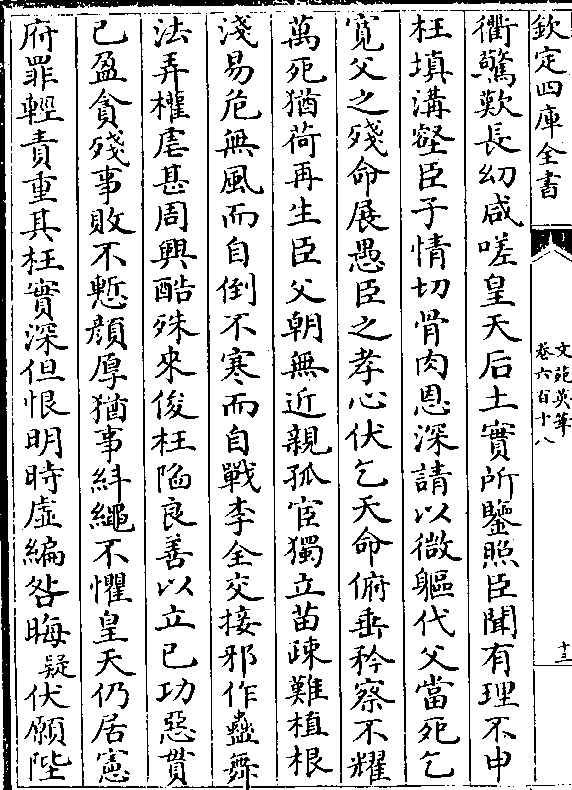 欽定四庫全書
文苑英華
卷六百十八
十三
衢驚歎長幼咸嗟皇天后土實所鑒照臣聞有理不申
枉填溝壑臣子情切骨肉恩深請以微軀代父當死乞
寛父之殘命展愚臣之孝心伏乞天命俯垂矜察不耀
萬死猶荷再生臣父朝無近親孤宦獨立苗疎難植根
淺易危無風而自倒不寒而自戰李全交接邪作蠱舞
法弄權虐甚周興酷殊来俊枉陥良善以立已功惡貫
已盈貪殘事敗不慙顔厚猶事紏繩不懼皇天仍居憲
府罪輕責重其枉實深但恨明時虚編咎晦疑伏願陛